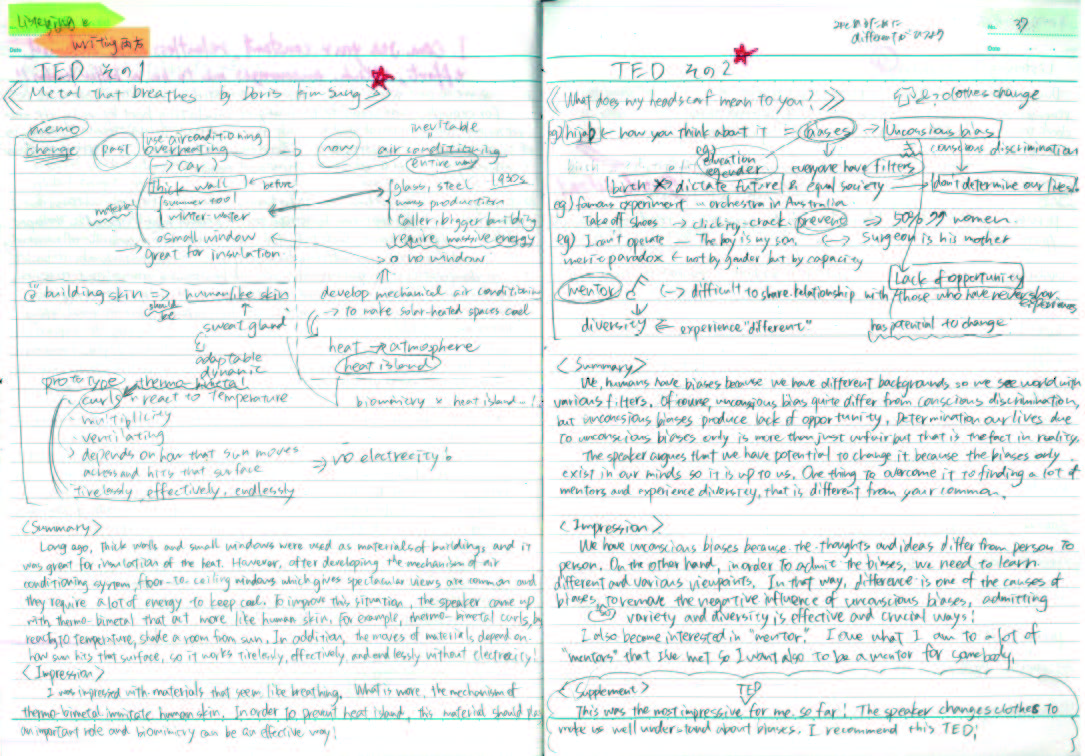 Listening &
writing 両方
Date
TED その1
《Metal that breathes by Doris Kim Sung》
memo
change
past
use airconditioning
overheating
→ car?
thick wall ← before
material
summer-cool
winter-
small window
great for insulation
now
inevitable
air conditioning
entire way
glass, steel 1930s
mass production
taller, bigger building
require massive energy
no window
building skin => humanlike skin
should be
sweat gland
adaptable
dynamic
develop mechanical air conditioning
→ to make solar-heated spaces cool
heat → atmosphere
heat island
biomimicry × heat island...!
prototype
thermo-bimetal
curls react to temperature
multiplicity
ventilating
depends on how that sun moves
across and hits that surface
=> no electrecity!
tirelessly, effectively, endlessly
<Summary>
Long ago, thick walls and small windows were used as materials of buildings, and it
was great for insulation of the heat. However, after developing the mechanism of air
conditioning system, floor-to-ceiling windows which gives spectacular views are common and
they require a lot of energy to keep cool. To improve this situation, the speaker came up
with thermo-bimetal that act more like human skin. For example, thermo-bimetal curls, by
reacting to temperature, shade a room from sun. In addition, the moves of materials depend on
how sun hits that surface, so it works tirelessly, effectively, and endlessly without electrecity!
<Impression>
I was impressed with materials that seem like breathing. What is more, the mechanism of
thermo-bimetal immitate human skin. In order to prevent heat island, this material should play
an important role and biomimicry can be an effective way!
different
No. 37
Date
TED その2
《What does my headscarf mean to you?》
clothes change
eg) hijab ← how you think about it = biases → Unconscious bias
conscious discrimination
eg)
education
gender
everyone have filters
birth × dictate future & equal society
don't determine our lives
eg) famous experiment in orchestra in Australia
Take off shoes → clicky-crack prevent => 50% women.
eg) I can't operate — The boy is my son. Surgeon is his mother
merit paradox ← not by gender but by capacity
Lack of opportunity
mentor
difficult to share relationship with those who have never
diversity experience "different"
has potential to change
<Summary>
We, humans have biases because we have different backgrounds so we see world with
various filters. Of course, unconscious bias quite differ from conscious discrimination,
but unconscious biases produce lack of opportunity. Determination our lives due
to unconscious biases only is more than just unfair but that is the fact in reality.
The speaker argues that we have potential to change it because the biases only
exist in our minds so it is up to us. One thing to overcome it to finding a lot of
mentors and experience diversity, that is different from your common.
<Impression>
We have unconscious biases because the thoughts and ideas differ from person to
person. On the other hand, in order to admit the biases, we need to learn
different and various viewpoints. In that way, difference is one of the causes of
biases, to remove the negative influence of unconscious biases, admitting
variety and diversity is effective and crucial ways!
I also became interested in "mentor". I owe what I am to a lot of
"mentors" that I've met so I want also to be a mentor for somebody.
<Supplement>
TED
This was the most impressive for me so far! The speaker changes clothes to
make us well understand about biases. I recommend this TED!